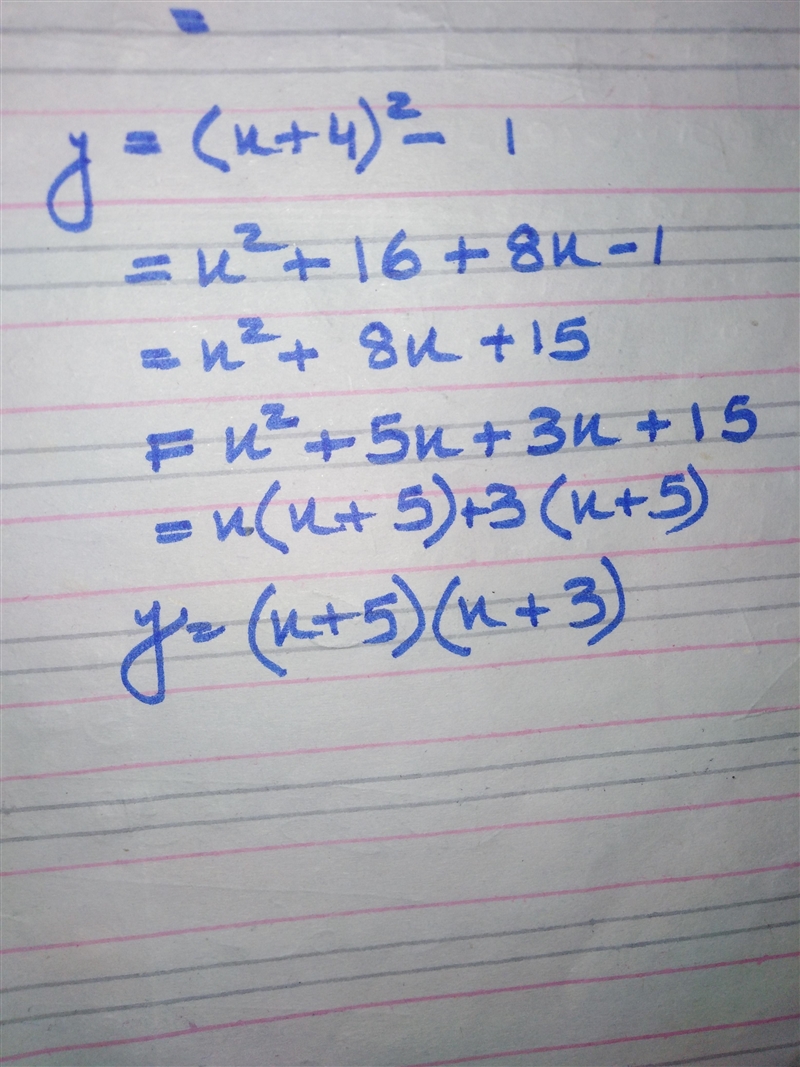 =
y = (x+4)² - 1
= x² + 16 + 8x - 1
= x² + 8x + 15
= x² + 5x + 3x + 15
= x(x+5)+3(x+5)
y = (x+5)(x+3)